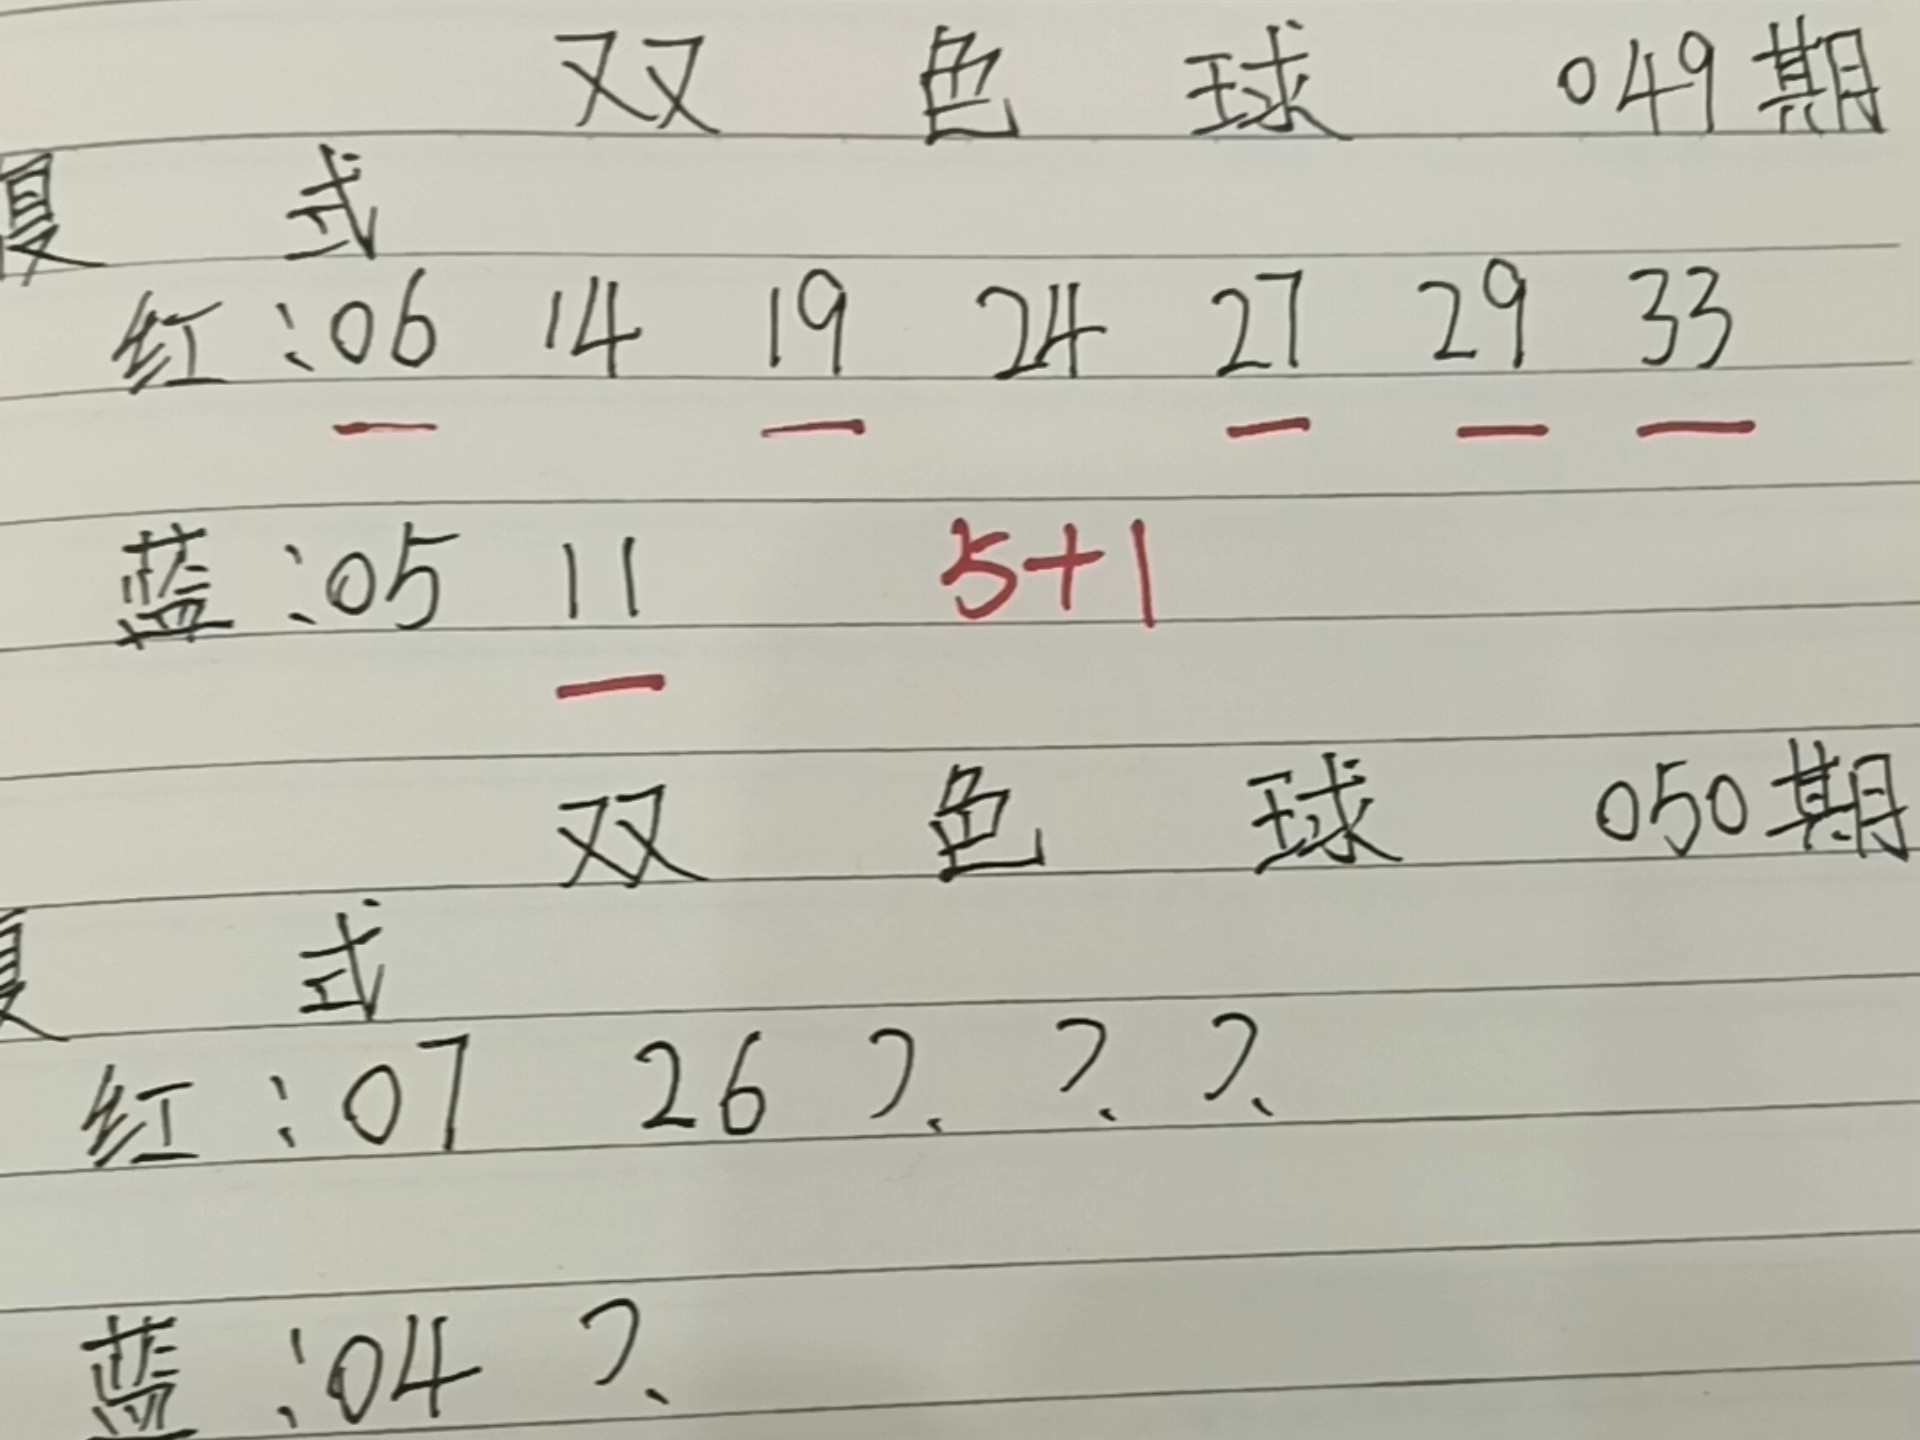 双 色 球 049期
复 式
红:06 14 19 24 27 29 33
蓝:05 11 5+1
双 色 球 050期
复 式
红:07 26 ? ? ?
蓝:04 ?